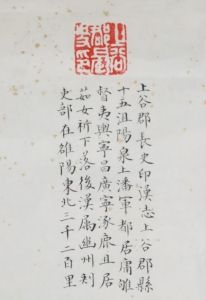 上谷郡長史印
上谷郡長史印漢志上谷郡縣
十五沮陽泉上潘軍都居庸雊
瞀夷輿寧昌廣寧涿鹿且居
茹女祈下落後漢屬幽州刺
史部在雒陽東北三千二百里